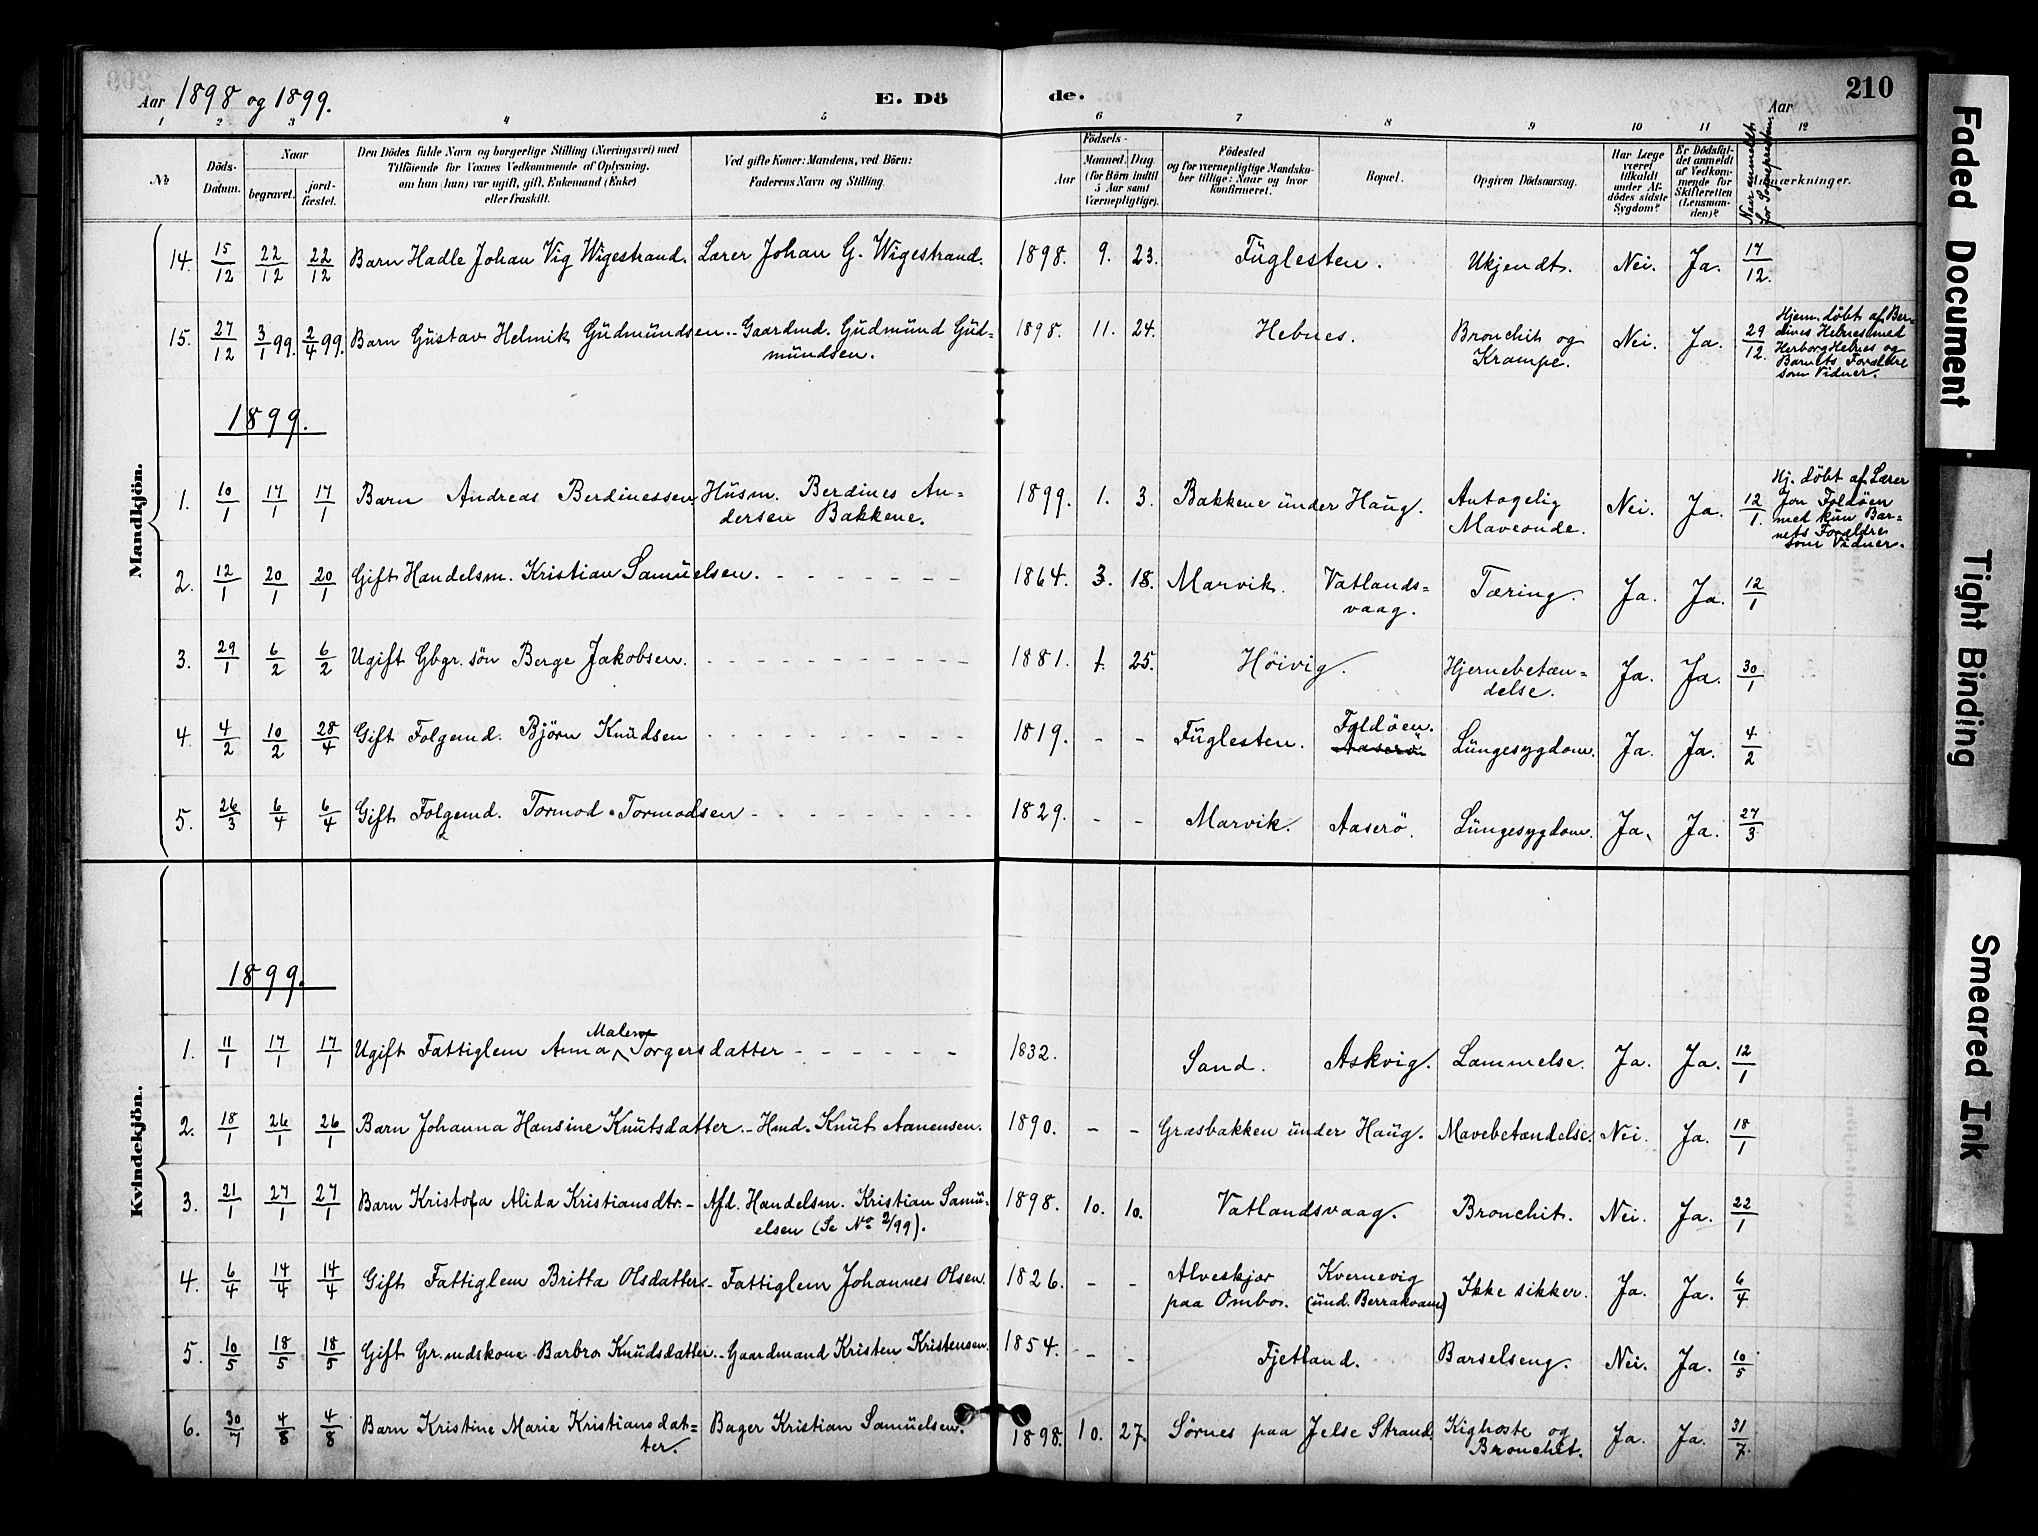 Aar 1898 og 1899.
E. Dö
de.
Aar
210
1 2 3 4 5 6 7 8 9 10 11 12
№
Döds-
Datum.
Naar
begravet.
jord-
fæstet.
Den Dödes fulde Navn og borgerlige Stilling (Næringsvei) med
Tilföiende for Voxnes Vedkommende af Oplysning,
om han (hun) var ugift, gift, Enkemand (Enke)
eller fraskilt.
Ved gifte Koner: Mandens, ved Börn:
Faderens Navn og Stilling.
Födsels-
Aar
Maaned.
Dag.
(for Börn indtil
5 Aar samt
Værnepligtige).
Födested
og for værnepligtige Mandsku-
ber tillige: Naar og hvor
konfirmeret.
Bopæl.
Opgiven Dödsaarsag.
Har Læge
været
tilkaldt
under Af-
dödes sidste
Sygdom?
Er Dödsfal-
det anmeldt
af Vedkom-
mende for
Skifteretten
(Lensman-
den)?
Naar anmeldt
for Sognepresten.
Anmærkninger.
Mandkjön.
14. 15/12 22/12 22/12 Barn Hadle Johan Vig Wigestrand. Lærer Johan G. Wigestrand. 1898. 9. 23. Füglesten. Ukjendt. Nei. Ja. 17/12.
15. 27/12 3/1 99. 2/4 99. Barn Güstav Helmik Güdmündsen.. Gaardmd. Güdmünd Güd-
mündsen.
1898. 11. 24. Hebnes. Bronchit og
Krampe.
Nei. Ja. 29/12.
Hjem. döbt af Ber-
dines Hebnes med
Herborg Hebnes og
Barnets Forældre
som Vidner.
1899.
1. 10/1 17/1 17/1 Barn Andreas Berdinessen. Hüsm. Berdines An-
dersen Bakkene.
1899. 1. 3. Bakkene ünder Haug. Antagelig
Maveonde.
Nei. Ja. 12/1.
Hj. döbt af Lærer
Jon Foldöen
med kün Bar-
nets Forældre
som Vidner.
2. 12/1 20/1 20/1 Gift Handelsm. Kristian Samüelsen. - - - - - - - 1864. 3. 18. Marvik. Vatlands-
vaag.
Tæring. Ja. Ja. 12/1
3. 29/1 6/2 6/2 Ugift Gbgr. sön Berge Jakobsen. - - - - - - - 1881. 1. 25. Höivig. Hjernebetæn-
delse.
Ja. Ja. 30/1
4. 4/2 10/2 28/4 Gift Folgemd. Björn Knüdsen - - - - - - - 1819. - - Füglesten. Foldöen.
Aaserö
Lüngesygdom. Ja. Ja. 4/2
5. 26/3 6/4 6/4 Gift Folgemd. Tormod Tormodsen - - - - - - - 1829. - - Marvik. Aaserö. Lüngesygdom. Ja. Ja. 27/3
Kvindekjön.
1899.
Malene
1. 11/1 17/1 17/1 Ugift Fattiglem Anna Torgersdatter - - - - - - 1832. Sand. Askvig. Lammelse. Ja. Ja. 12/1
2. 18/1 26/1 26/1 Barn Johanna Hansine Knütsdatter. - Hmd. Knüt Aanensen. 1890. - - Græsbakken ünder Haüg. Mavebetændelse. Nei. Ja. 18/1
3. 21/1 27/1 27/1 Barn Kristofa Alida Kristiansdtr. - Afd. Handelsm. Kristian Samü-
elsen (Se No 2/99).
1898. 10. 10. Vatlandsvaag. Bronchit. Nei. Ja. 22/1
4. 6/4 14/4 14/4 Gift Fattiglem Britta Olsdatter - Fattiglem Johannes Olsen. 1826. - - Alveskjær
paa Ombo.
Kvernevig
(ünd. Berrakvam)
Ikke sikker. Ja. Ja. 6/4
5. 10/5 18/5 18/5 Gift Gr.mdskone Barbro Knüdsdatter. - Gaardmand Kristen Kristensen. 1854. - - Fjetland. Barselseng. Nei. Ja. 10/5
6. 30/7 4/8 4/8 Barn Kristine Marie Kristiansdat-
ter.
Bager Kristian Samüelsen. 1898. 10. 27. Sörnes paa Jelse Strand. Kighoste og
Bronchit.
Ja. Ja. 31/7.
Faded Document
Tight Binding
Smeared Ink